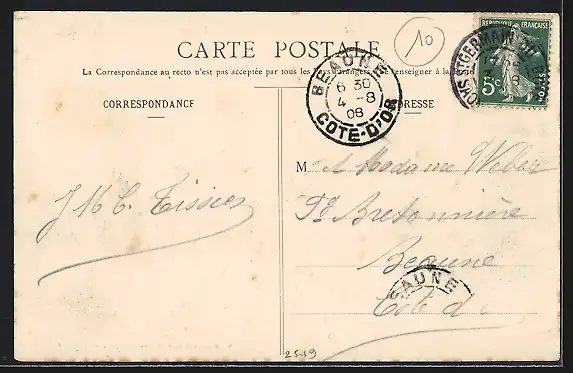 CARTE POSTALE
10
RÉPUBLIQUE FRANÇAISE
5c
POSTES
ST GERMAIN DU
La Correspondance au recto n'est pas acceptée par tous les Pays étrangers. Se renseigner à la
BEAUNE
6 30
4 -8
08
COTE-D'OR
CORRESPONDANCE
ADRESSE
M A Madame Weber
Fg Bretonnière
Beaune
Côte d
J M C. Tissier
BEAUNE
25-19